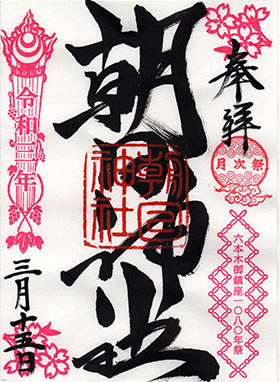 奉拝
月次祭
六本木御鎮座一〇八〇年祭
朝日神社
朝日
神社
令和三年
三月十五日